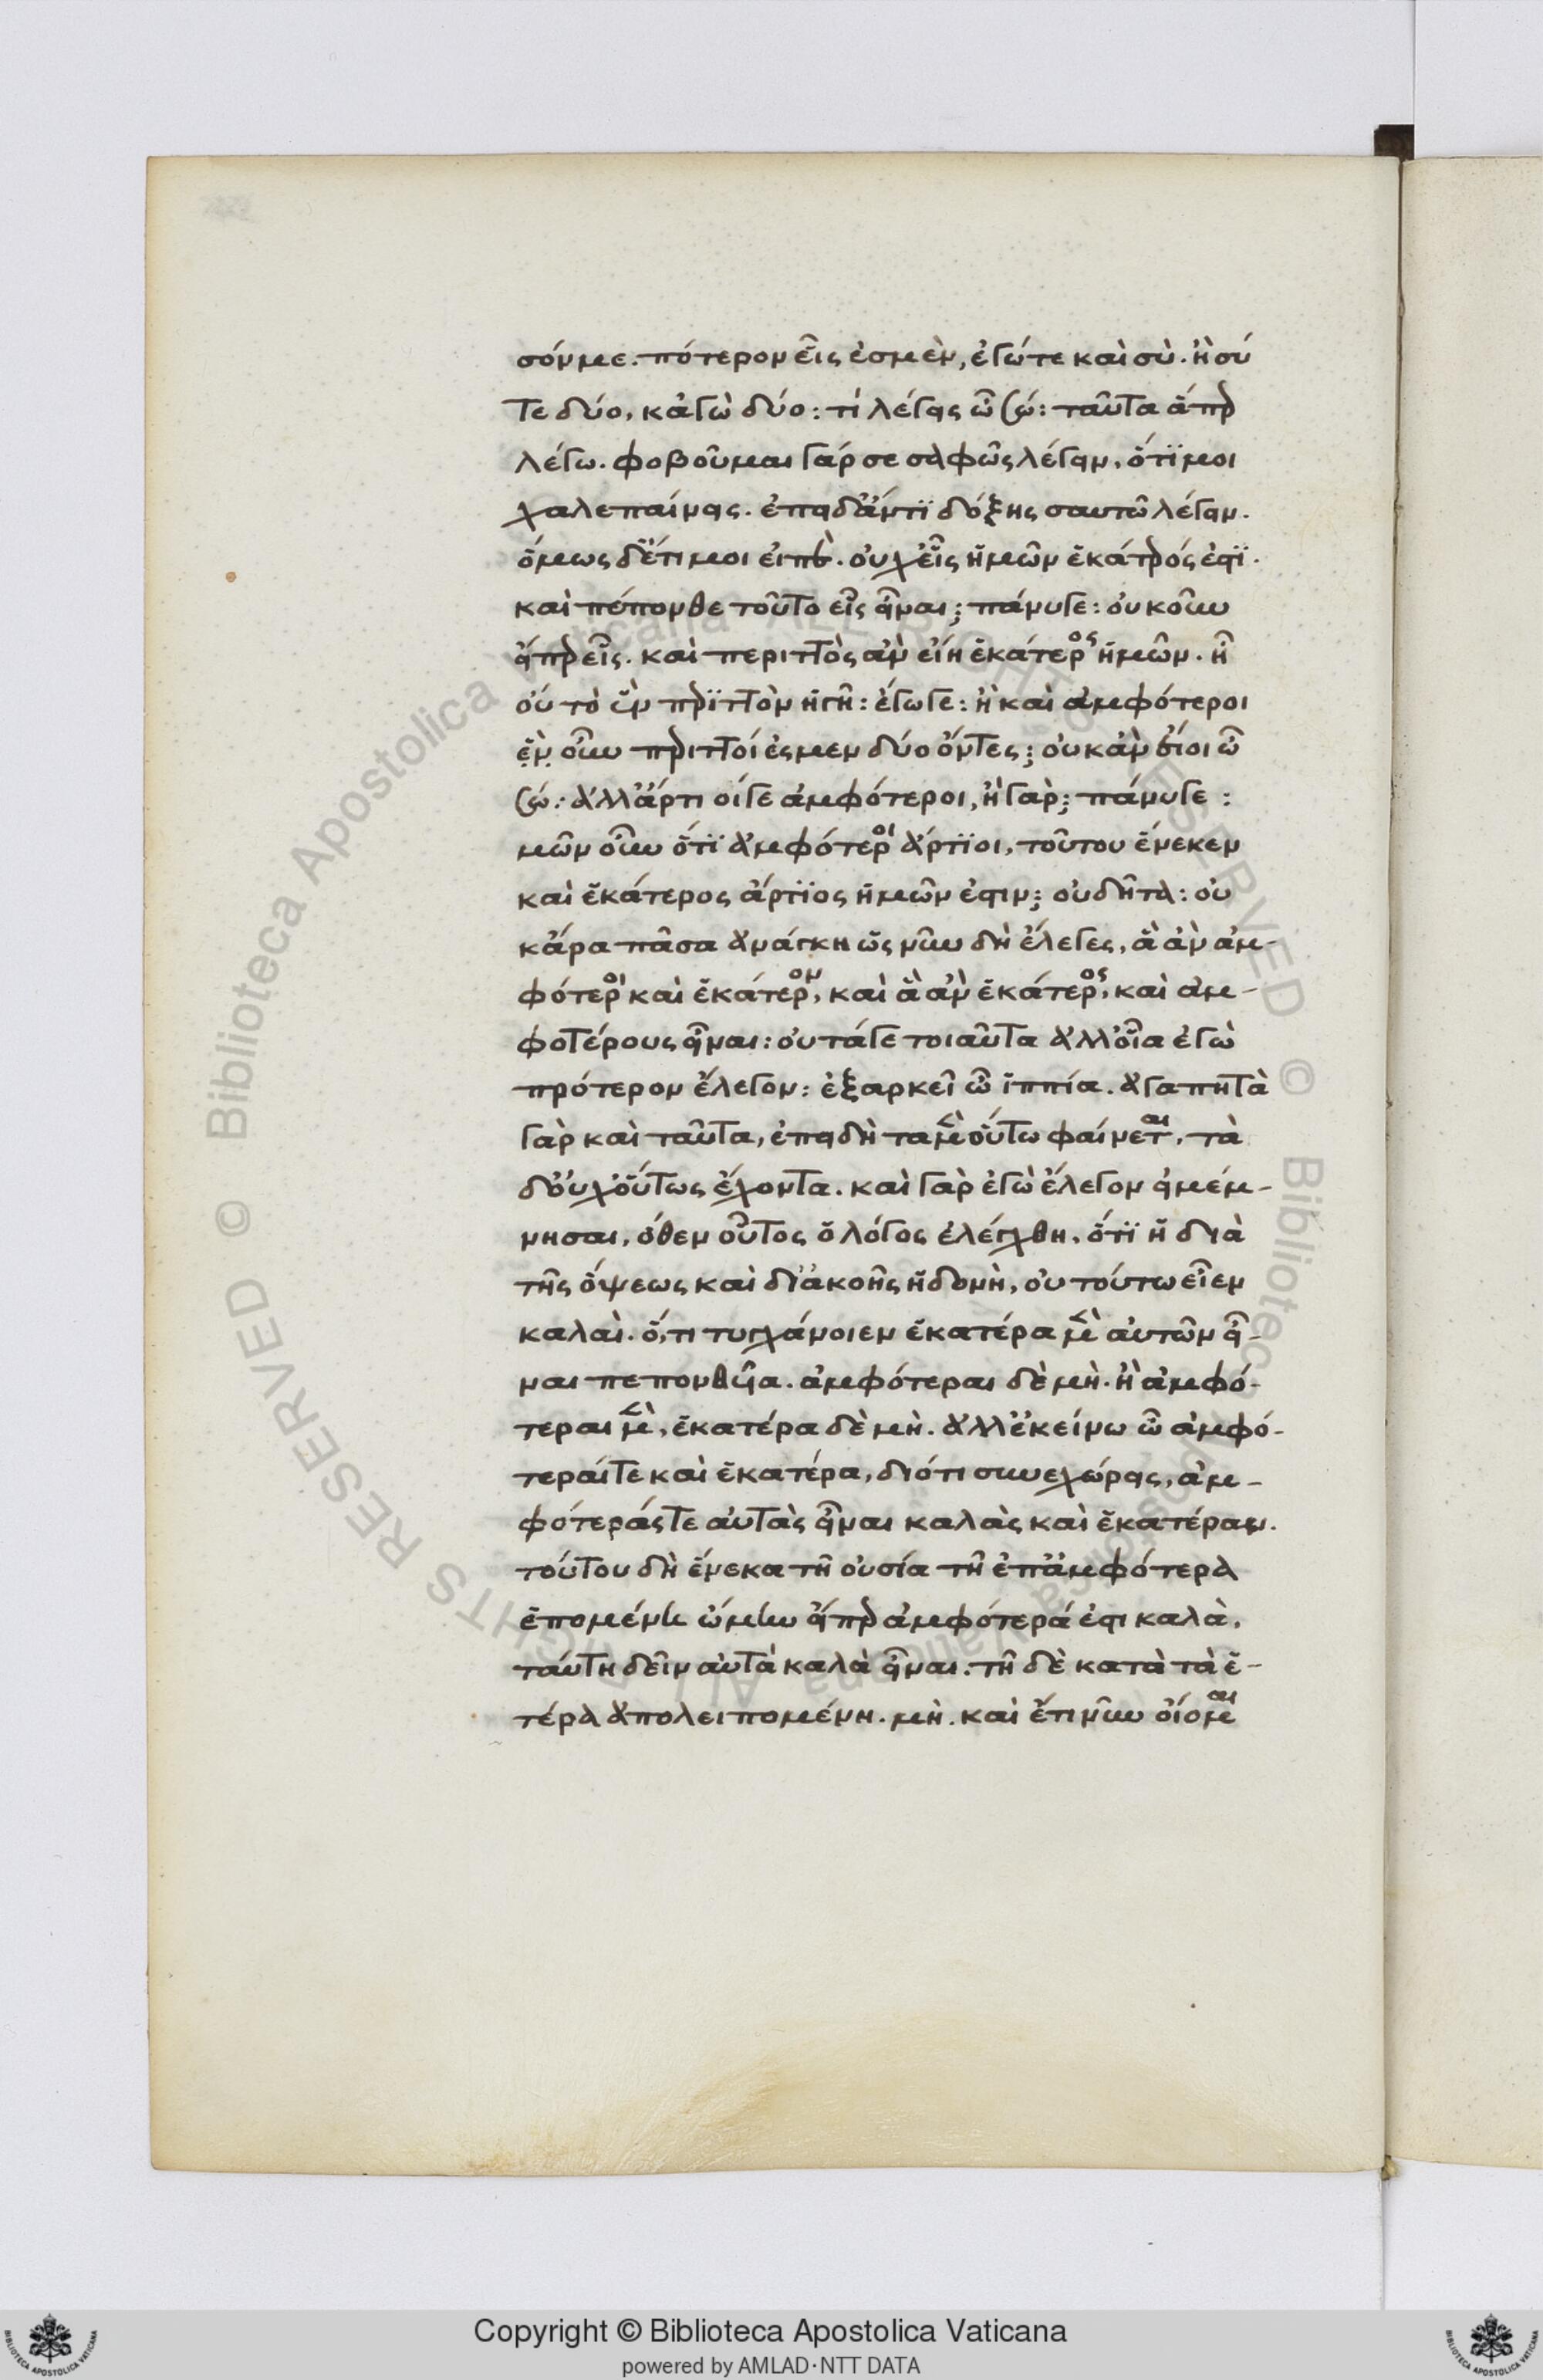 σόν με. πότερον εἷς ἐσμὲν, ἐγώ τε καὶ σὺ. ἢ σύ
τε δύο, κἀγὼ δύο: τί λέγεις ὦ ςώ: ταῦτα ἅπερ
λέγω. φοβοῦμαι γάρ σε σαφῶς λέγειν, ὅτι μοι
χαλεπαίνεις. ἐπειδἄν τι δόξης σαυτῶ λέγειν.
ὅμως δ' ἔτι μοι εἰπὲ. οὐχ εἷς ἡμῶν ἑκάτερός ἐστι.
καὶ πέπονθε τοῦτο εἷς εἶναι; πάνυγε: οὐκοῦν
εἴπερ εἷς. καὶ περιττὸς ἂν εἴη ἑκάτερος ἡμῶν. ἢ
οὐ τὸ ἓν περιττὸν ἡγῆ: ἔγωγε: ἢ καὶ ἀμφότεροι
ἓν οὖν περιττοί ἐσμεν δύο ὄντες; οὐκ ἂν εἴοι ὦ
ςώ: ἀλλ' ἄρτιοί γε ἀμφότεροι, ἢ γὰρ; πάνυγε:
μῶν οὖν ὅτι ἀμφότεροι ἄρτιοι, τούτου ἕνεκεν
καὶ ἑκάτερος ἄρτιος ἡμῶν ἐστιν; οὐ δῆτα: οὐ
κἄρα πᾶσα ἀνάγκη ὡς νῦν δὴ ἔλεγες, ἃ ἂν ἀμ-
φότεροι καὶ ἑκάτερον, καὶ ἃ ἂν ἑκάτερος, καὶ ἀμ-
φοτέρους εἶναι: οὐ τά γε τοιαῦτα ἀλλ' οἷα ἐγὼ
πρότερον ἔλεγον: ἐξαρκεῖ ὦ ἱππία. ἀγαπητὰ
γὰρ καὶ ταῦτα, ἐπειδὴ τὰ μὲν οὕτω φαίνεται, τὰ
δ' οὐχ οὕτως ἔχοντα. καὶ γὰρ ἐγὼ ἔλεγον εἰ μέμ-
νησαι, ὅθεν οὗτος ὁ λόγος ἐλέγχθη, ὅτι ἡ διὰ
τῆς ὄψεως καὶ δι' ἀκοῆς ἡδονὴ, οὐ τούτω εἶεν
καλαὶ. ὅ,τι τυγχάνοιεν ἑκατέρα μὲν αὐτῶν εἶ-
ναι πεπονθυῖα. ἀμφότεραι δὲ μὴ. ἢ ἀμφό-
τεραι μὲν, ἑκατέρα δὲ μὴ. ἀλλ' ἐκείνω ὧ ἀμφό-
τεραί τε καὶ ἑκατέρα, διότι συνεχώρεις, ἀμ-
φότεράς τε αὐτὰς εἶναι καλὰς καὶ ἑκατέραν.
τούτου δὴ ἕνεκα τῆ οὐσία τῆ ἐπ' ἀμφότερα
ἑπομένη ὤμην εἴπερ ἀμφότερά ἐστι καλὰ,
ταύτη δεῖν αὐτὰ καλὰ εἶναι. τῆ δὲ κατὰ τὰ ἕ-
τέρα ἀπολειπομένη. μὴ. καὶ ἔτι νῦν οἴομαι
Copyright © Biblioteca Apostolica Vaticana
powered by AMLAD·NTT DATA